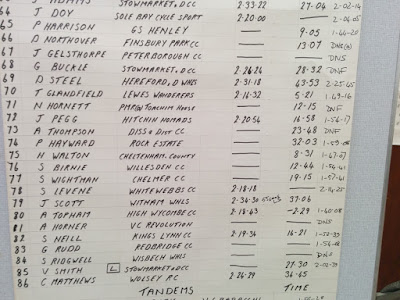 ADAMS STOWMARKET & DCC 2-33-22 27-04 2-02-14
64 J DOY SOLE BAY CYCLE SPORT 2-20-00
65 P HARRISON GS HENLEY 9-05 1-44-20
66 D NORTHOVER FINSBURY PARK CC 13-07
67 J GELSTHORPE PETERBOROUGH CC DNS
68 G BUCKLE STOWMARKET & DCC 2-26-26 28-32 DNF
69 D STEEL HEREFORD, D WHLS 2-31-18 43-53 2-25-45
70 T GLANDFIELD LEWES WANDERERS 2-16-32 5-21
71 N HORNETT House 12-15 DNF
72 J PEGG HITCHIN NOMADS 2-20-54 16-58
73 A THOMPSON DISS & DIST CC 23-48 DNF
74 P HAYWARD ROCK ESTATE 32-03
75 H WALTON CHELTENHAM. COUNTY 8-31
76 S BIRNIE WILLESDEN CC 12-44
77 S WIGHTMAN CHELMER CC 19-15
78 S LEVENE WHITEWEBBS CC 2-18-18
79 J SCOTT WITHAM WHLS 2-36-30 37-06
80 A TOPHAM HIGH WYCOMBE CC 2-18-43 -2-29
81 A HORNER VC REVOLUTION
82 S NEILL KINGS LYNN CC 2-19-34 16-21
83 G RUDD REDBRIDGE CC
84 S RIDGWELL WISBECH WHLS DNS
85 V SMITH L STOWMARKET & DCC 27-30
86 C MATTHEWS WOLSEY RC 2-26-29 36-45
TANDEMS TIME